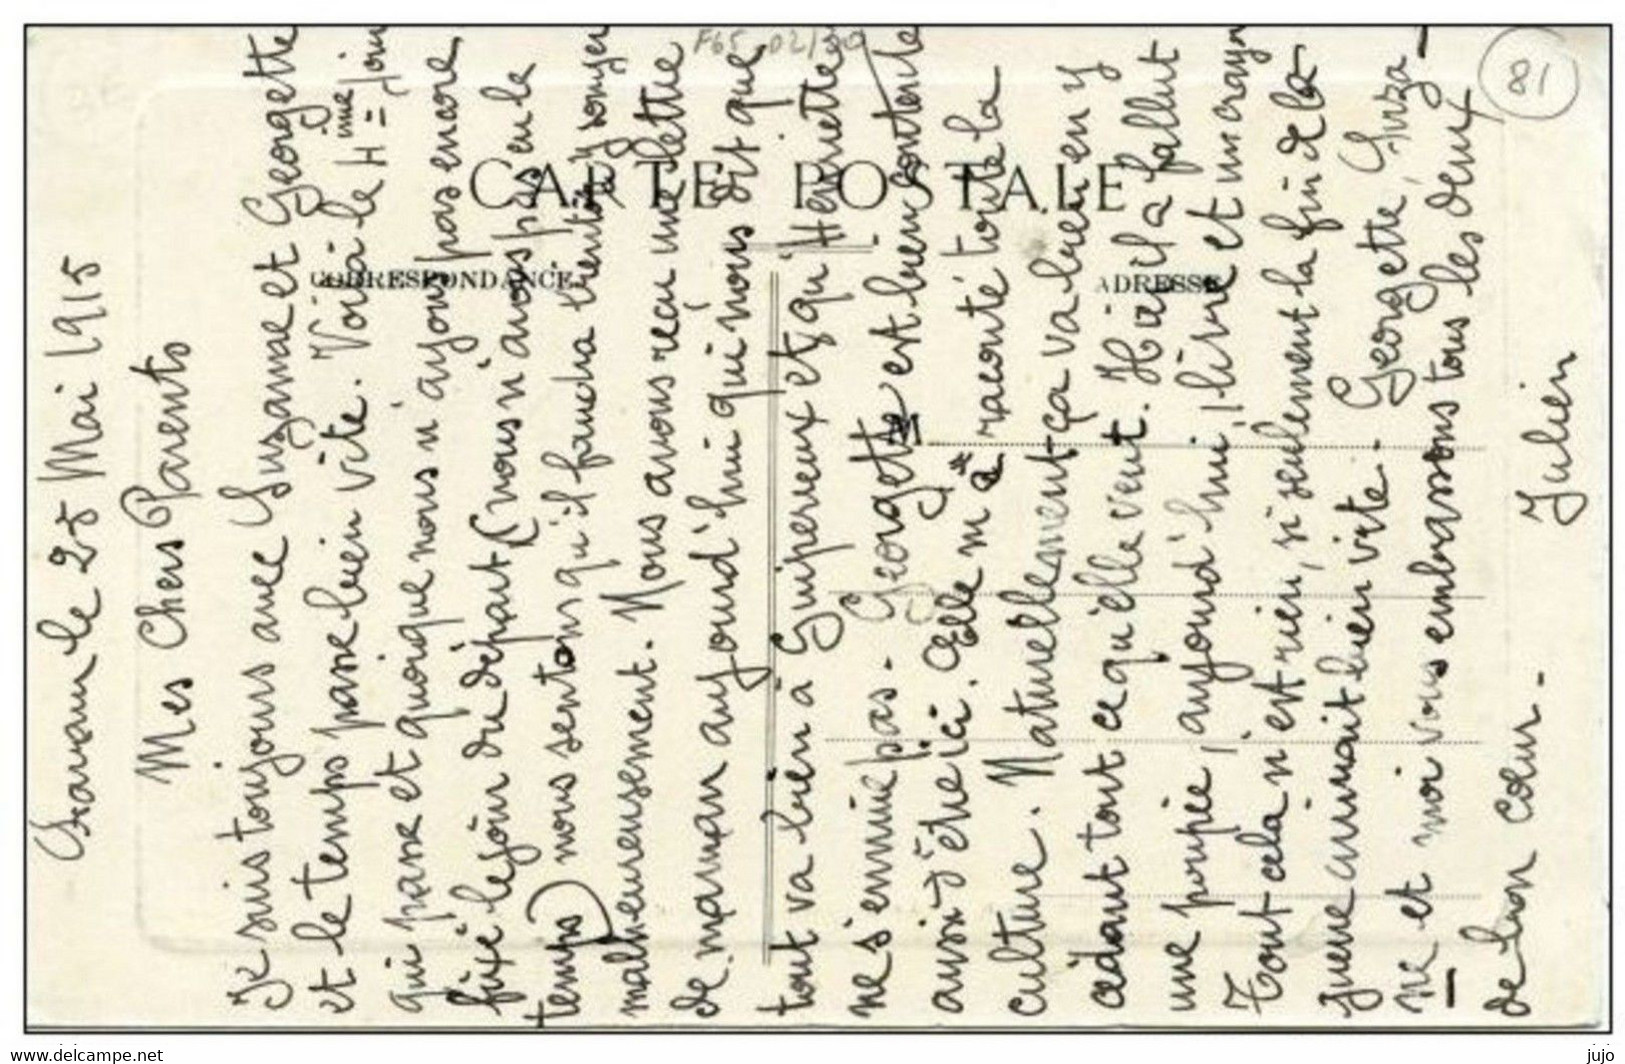 le 25 Mai 1915
Mes Chers Parents
Je suis toujours avec Suzanne et Georgette
et le temps passe bien vite. Voilà le 4ème jour
qui passe et quoique nous n'ayons pas encore
fixé le jour du départ (nous n'avons pas eu le
temps) nous sentons qu'il faudra bientôt y songer
malheureusement. Nous avons reçu une lettre
de maman aujourd'hui qui nous dit que
tout va bien à Guipereux et qu'Henriette
ne s'ennuie pas. Georgette est bien contente
aussi d'être ici. Elle m'a raconté toute la
culture. Naturellement ça va bien en y
cédant tout ce qu'elle veut. Hier il a fallut
une poupée, aujourd'hui 1 livre et un crayon
Tout cela n'est rien, si seulement la fin de la
guerre arrivait bien vite. Georgette, Suzan-
ne et moi vous embrassons tous les deux
de bon cœur.
Julien
CARTE POSTALE
CORRESPONDANCE
ADRESSE
M
F65 02/30
81
www.delcampe.net
jujo